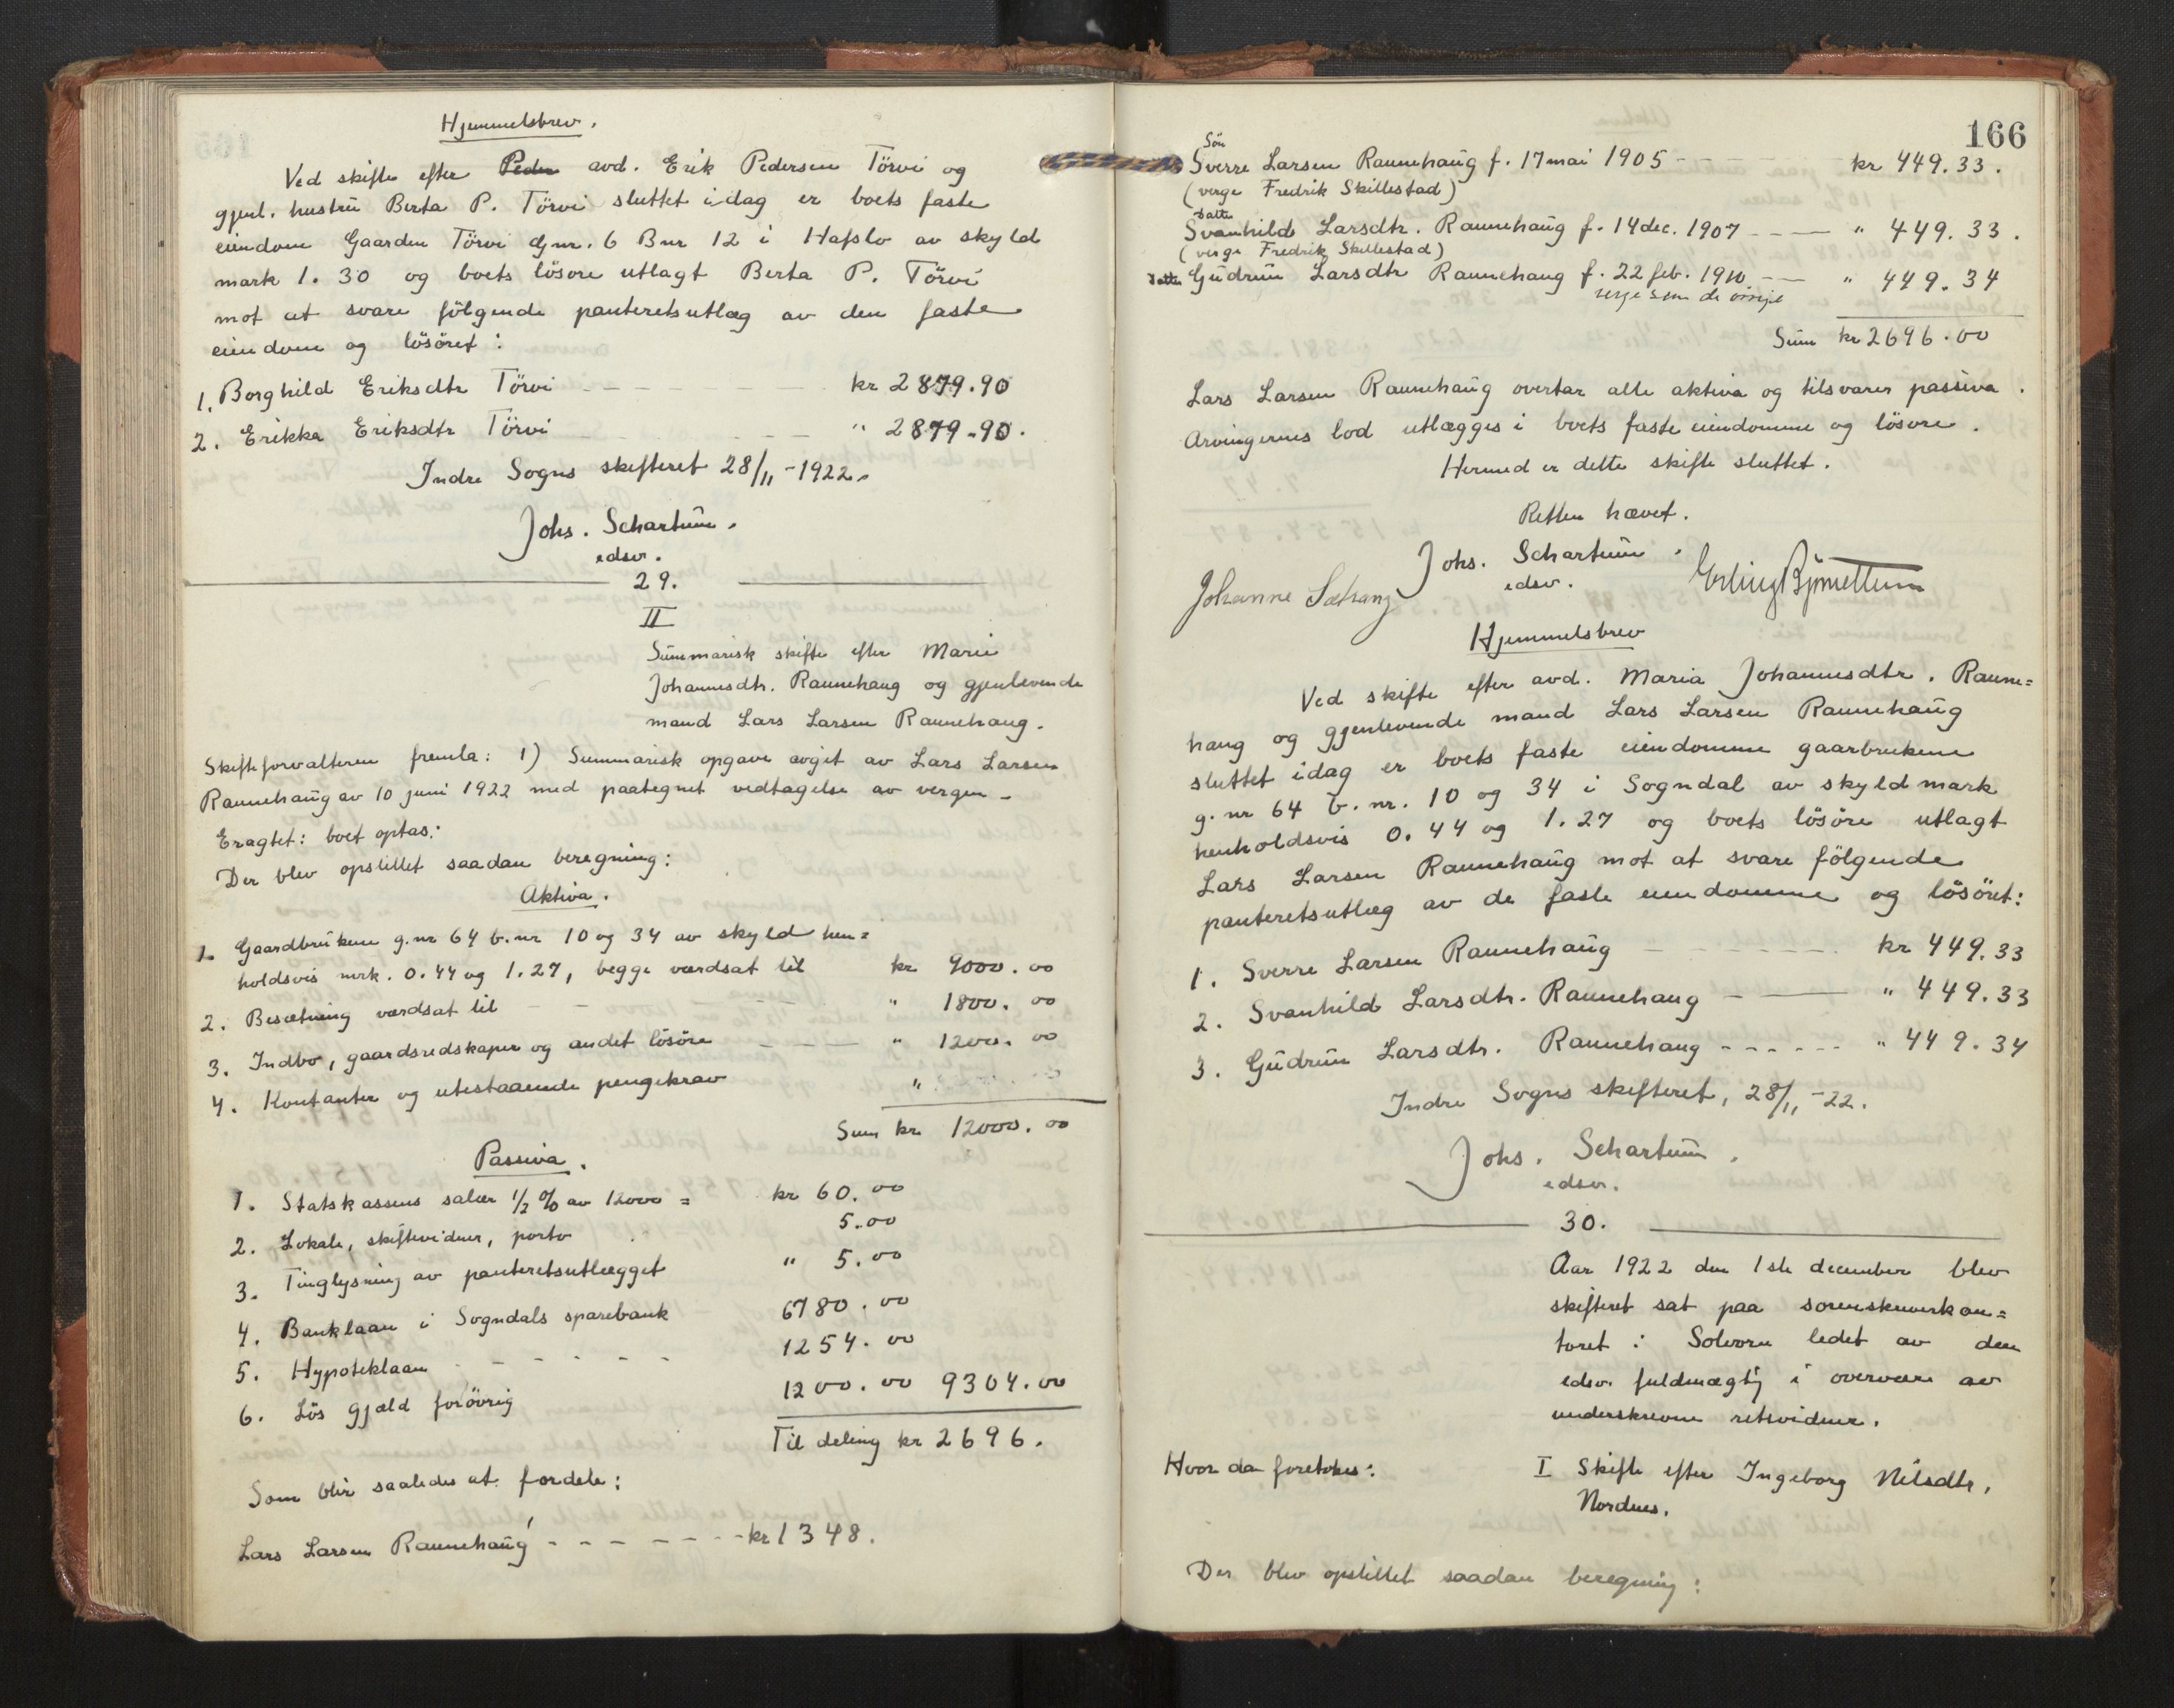 Hjemmelsbrev.
Ved skifte efter Peder avd. Erik Pedersen Törvi og
gjenl. hustru Berta P. Törvi sluttet idag er boets faste
eiendom Gaarden Törvi Gnr. 6 Bnr 12 i Hafslo av skyld
mark 1.30 og boets lösöre utlagt Berta P. Törvi
mot at svare fölgende panteretsutlæg av den faste
eiendom og lösöret:
1. Borghild Eriksdtr Törvi - - - kr 2879.90
2. Erikka Eriksdtr Törvi - - - " 2879.90.
Indre Sogns skifteret 28/11-1922.
Johs. Schartum.
edsv.
29.
II
Summarisk skifte efter Marie
Johannesdtr. Raunehaug og gjenlevende
mand Lars Larsen Raunehaug.
Skifteforvalteren fremla: 1) Summarisk opgave avgit av Lars Larsen
Raunehaug av 10 juni 1922 med paategnet vedtagelse av vergen -
Eragtet: boet optas:
Der blev opstillet saadan beregning:
Aktiva.
1. Gaardbrukene g.nr 64 b.nr 10 og 34 av skyld hen=
holdsvis mrk. 0.44 og 1.27, begge værdsat til kr 9000.00
2. Besætning værdsat til - - - " 1800.00
3. Indbo, gaardsredskaper og andet lösöre - - - " 1200.00
4. Kontanter og utestaaende pengekrav "
Sum kr 12000.00
Passiva.
1. Statskassens salær 1/2 % av 12000 = kr 60.00
2. Lokale, skiftevidner, porto 5.00
3. Tinglysning av panteretsutlægget " 5.00
4. Banklaan i Sogndals sparebank 6780.00
5. Hypoteklaan - - - 1254.00
6. Lös gjæld forövrig 1200.00 9304.00
Til deling kr 2696.
Som blir saaledes at fordele:
Lars Larsen Raunehaug - - - kr 1348.
166
Sön
Sverre Larsen Raunehaug f. 17 mai 1905 - - - kr 449.33.
(verge Fredrik Skillestad)
datter
Svanhild Larsdtr. Raunehaug f. 14 dec. 1907 - - - " 449.33.
(verge Fredrik Skillestad)
datter Gudrun Larsdtr Raunehaug f. 22 feb. 1910 - - " 449.34
verge som de övrige
Sum kr 2696.00
Lars Larsen Raunehaug overtar alle aktiva og tilsvarer passiva.
Arvingernes lod utlægges i boets faste eiendomme og lösöre.
Hermed er dette skifte sluttet.
Retten hævet.
Johs. Schartum.
edsv.
Johanne Sæhaug Erling Bjørnettun
Hjemmelsbrev
Ved skifte efter avd. Maria Johannesdtr. Raune=
haug og gjenlevende mand Lars Larsen Raunehaug
sluttet idag er boets faste eiendomme gaarbrukene
g.nr 64 b.nr. 10 og 34 i Sogndal av skyldmark
henholdsvis 0.44 og 1.27 og boets lösöre utlagt
Lars Larsen Raunehaug mot at svare fölgende
panteretsutlæg av de faste eiendomme og lösöret:
1. Sverre Larsen Raunehaug - - - kr 449.33
2. Svanhild Larsdtr. Raunehaug - - - " 449.33
3. Gudrun Larsdtr. Raunehaug - - - " 449.34
Indre Sogns skifteret, 28/11-22.
Johs. Schartum.
edsv.
30.
Aar 1922 den 1ste december blev
skifteret sat paa sorenskriverkon=
toret i Solvorn ledet av den
edsv. fuldmægtig i overvær av
underskrevne retsvidner.
Hvor da foretokes: I Skifte efter Ingeborg Nilsdtr,
Nordnes.
Der blev opstillet saadan beregning: